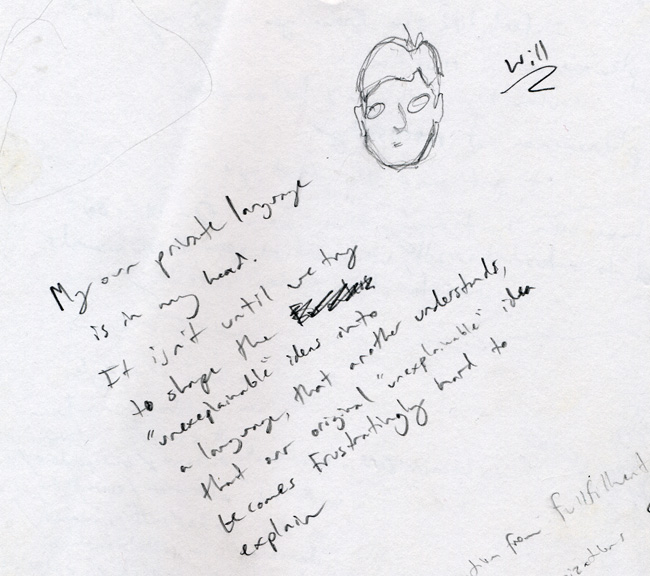 Will
My own private language
is in my head.
It isn't until we try
to shape the
"unexeplainable" ideas into
a language, that another understands,
that our original "unexplainable" idea
becomes frustratingly hard to
explain
from fullfillment